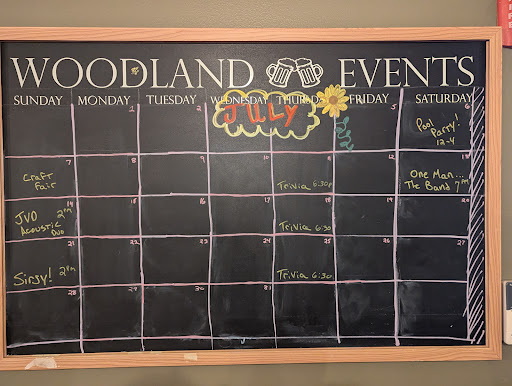 WOODLAND EVENTS
SUNDAY MONDAY TUESDAY WEDNESDAY THURSDAY FRIDAY SATURDAY
JULY
1 2 5 6
Pool
Party!
12-4
7 8 9 10 11 12 13
Craft
Fair
Trivia 6:30p
One Man...
The Band 7PM
14 15 16 17 18 19 20
JVO 2PM
Acoustic
Duo
Trivia 6:30
21 22 23 24 25 26 27
Sirsy! 2PM
Trivia 6:30
28 29 30 31